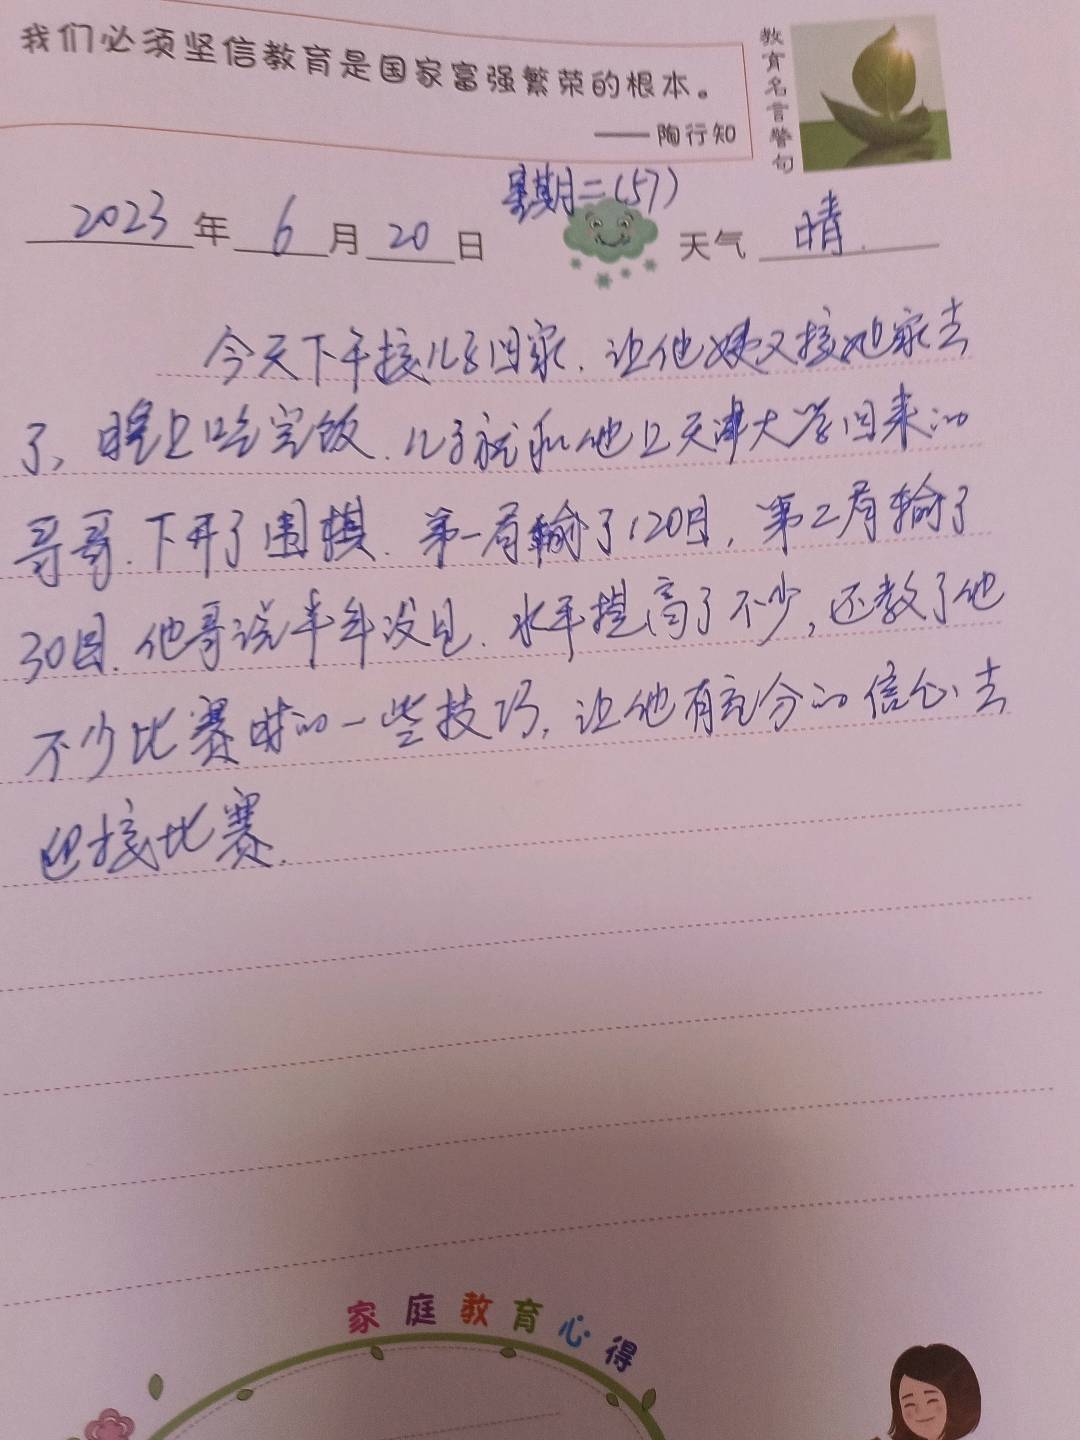 我们必须坚信教育是国家富强繁荣的根本。
——陶行知
教育名言警句
星期二(57)
2023年6月20日 天气 晴.
今天下午接儿子回家.让他姨又接她家去
了、晚上吃完饭.儿子就和他上天津大学回来的
哥哥.下开了围棋.第一局输了120目,第二局输了
30目.他哥说半年没见.水平提高了不少,还教了他
不少比赛时的一些技巧,让他有充分的信心去
迎接比赛.
家庭教育心得